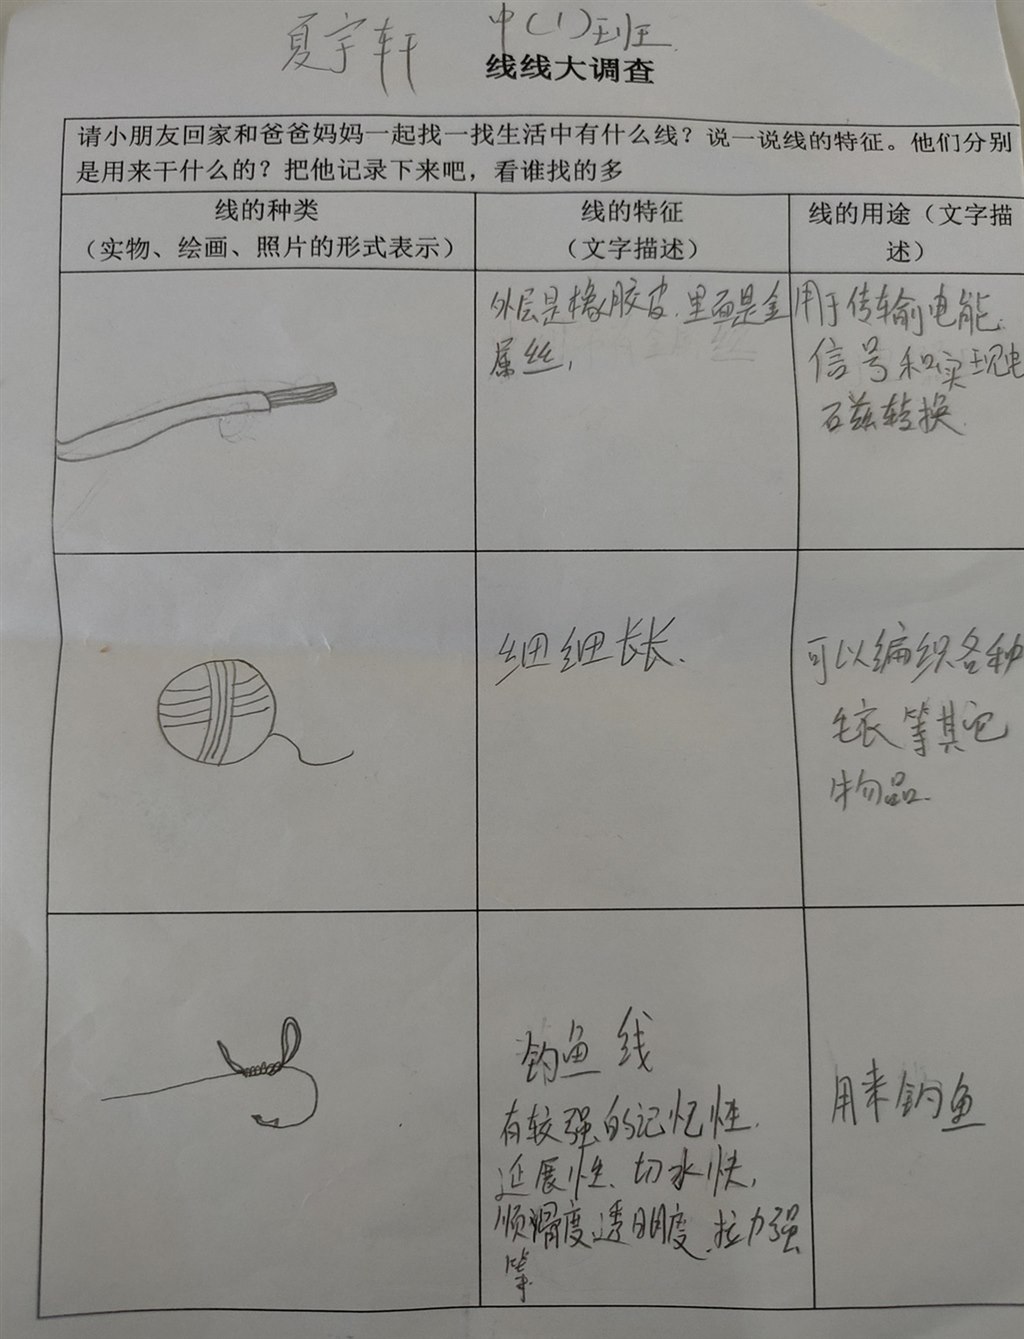 夏宇轩 中(1)班
线线大调查
请小朋友回家和爸爸妈妈一起找一找生活中有什么线？说一说线的特征。他们分别
是用来干什么的？把他记录下来吧，看谁找的多
线的种类
（实物、绘画、照片的形式表示）
线的特征
（文字描述）
线的用途（文字描
述）
外层是橡胶皮，里面是金
属丝，
用于传输电能、
信号和实现电
磁转换
细细长长.
可以编织各种
毛衣等其它
物品.
钓鱼线
有较强的记忆性、
延展性、切水快，
顺滑度透明度、拉力强
等
用来钓鱼